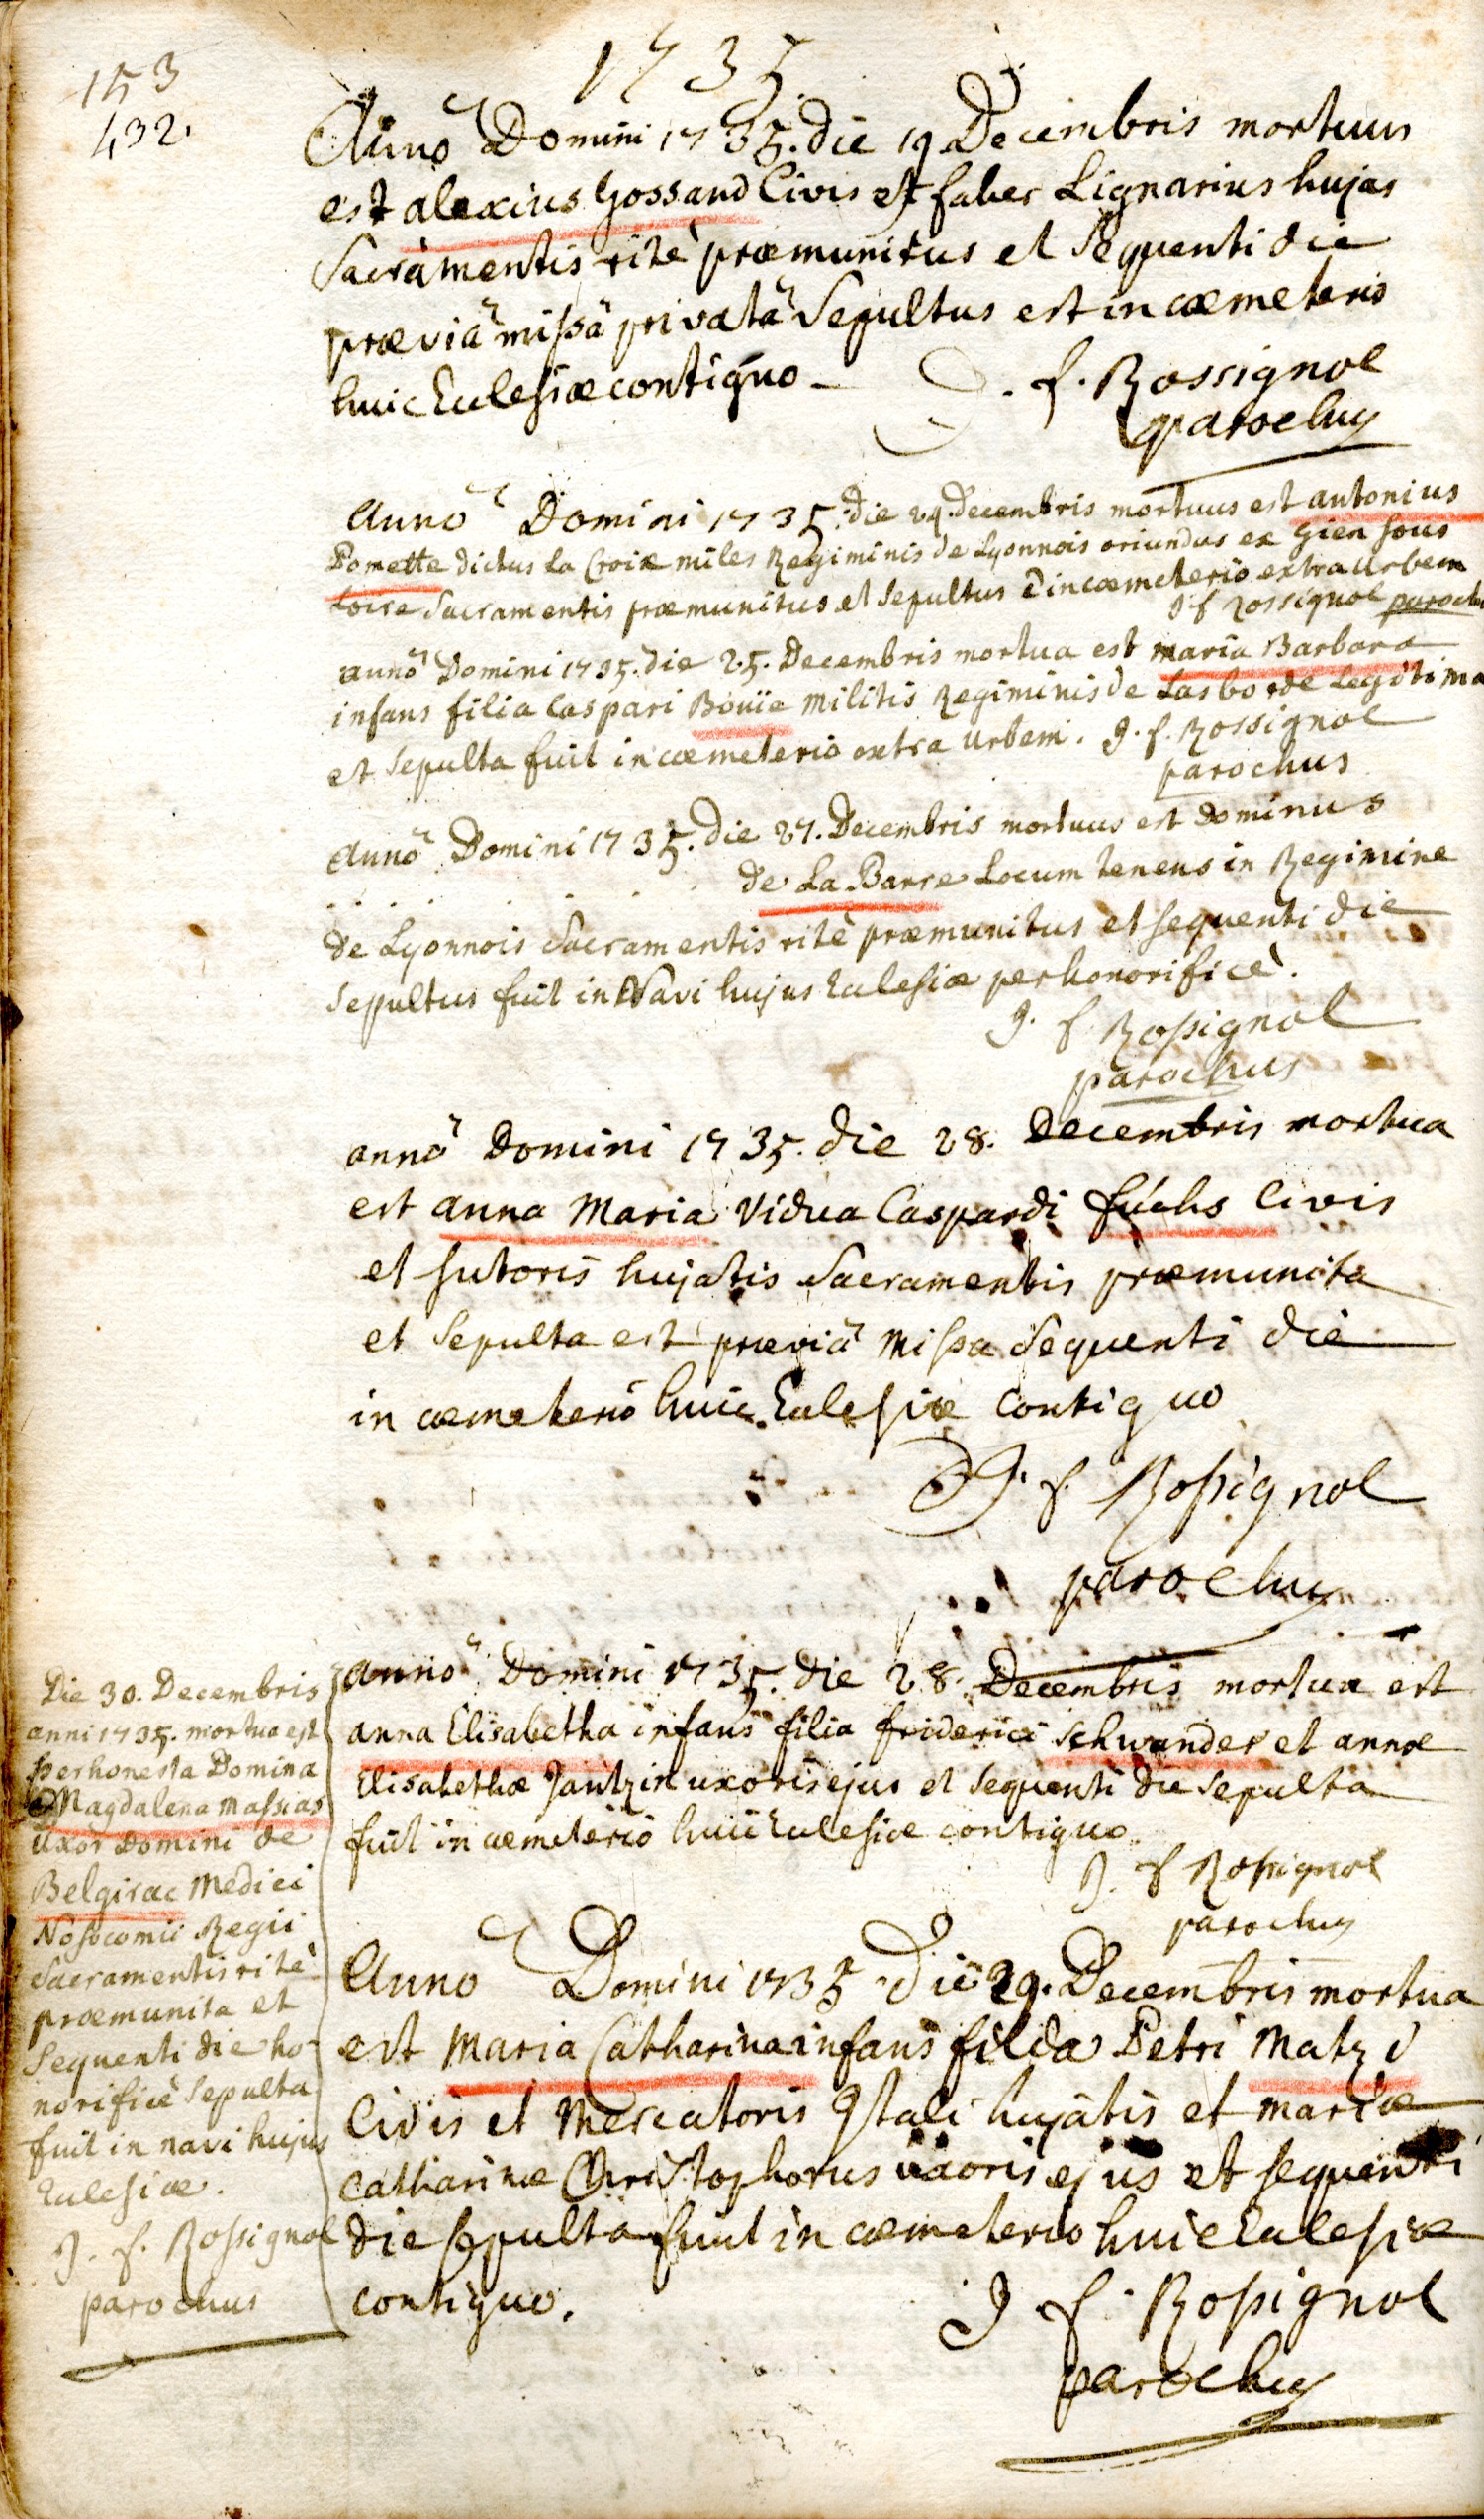 153
432.
1735
Anno Domini 1735. die 19 Decembris mortuus
est alexius Gossand Civis et faber Lignarius hujas
Sacramentis rite præmunitus et Sequenti die
præviâ missâ privatâ Sepultus est in cæmeterio
huic Eclesiæ contiguo – J. f. Rossignol
parochus
anno Domini 1735. die 24. decembris mortuus est antonius
Pomette dictus la Croix miles Regiminis de Lyonnois oriundus ex Gien sous
Loire Sacramentis præmunitus et Sepultus ē in cæmeterio extra urbem
J f Rossignol parochus
anno Domini 1735. die 25. Decembris mortua est maria Barbara
infans filia Caspari Bouïe militis Regiminis de Lasborde Legitima
et Sepulta fuit in cæmeterio extra urbem. J. f. Rossignol
parochus
anno Domini 1735. die 27. Decembris mortuus est dominus
. . . . . . . de La Barre Locum tenens in Regimine
de Lyonnois Sacramentis ritè præmunitus et sequenti die
Sepultus fuit in Navi hujus Eclesiæ perhonorificè.
J. f Rossignol
parochus
anno Domini 1735. die 28. Decembris mortua
est anna Maria Vidua Caspardi fuchs Civis
et sutoris hujatis Sacramentis præmunita
et Sepulta est præviâ missa Sequenti die
in cæmeterio huic Eclesiæ contiguo
J. f Rossignol
parochus
anno Domini 1735. die 28. Decembris mortua est
anna Elisabetha infans filia friderici Schwander et annæ
Elisabethæ Jantzin uxoris ejus et sequenti die Sepulta
fuit in cæmeterio huic Eclesiæ contiguo.
J. f Rossignol
parochus
Anno Domini 1735 Die 29. Decembris mortua
est Maria Catharina infans filia Petri Matz
Civis et Mercatoris Itali hujatis et mariæ
catharinæ Christophorus uxoris ejus et sequenti
die sepulta fuit in cæmeterio huic Eclesiæ
contiguo. J f. Rossignol
parochus
Die 30. Decembris
anni 1735. mortua est
perhonesta Domina
Magdalena Massias
uxor Domini de
Belgirac Medici
Nosocomii Regii
Sacramentis ritè
præmunita et
Sequenti die ho-
norificè Sepulta
fuit in navi hujus
Eclesiæ.
J. f. Rossignol
parochus